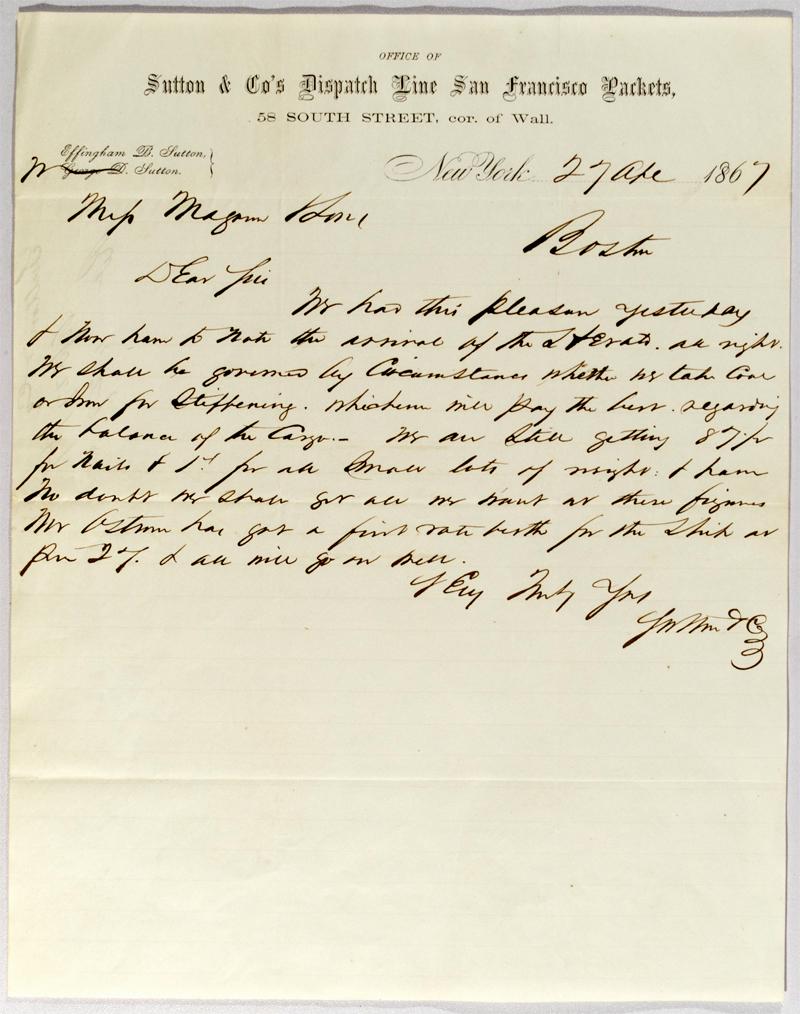 OFFICE OF
Sutton & Co's Dispatch Line San Francisco Packets,
58 SOUTH STREET, cor. of Wall.
Effingham B. Sutton,
George D. Sutton.
New York 27 Apl 1867
Mess Magoun & Son,
Boston
Dear Sir
We had this pleasure yesterday
& now have to note the arrival of the Herald. all right.
We shall be governed by Circumstances whether we take Coal
or Iron for Stiffening. whichever will pay the best. regarding
the balance of the Cargo.- We are still getting
for Nails & for all small lots of weight: & have
no doubt we shall get all we want at these figures
Mr Ostrom has got a first rate berth for the Ship at
Pier 27. & all will go on well.
Very Truly Yrs
Sutton & Co